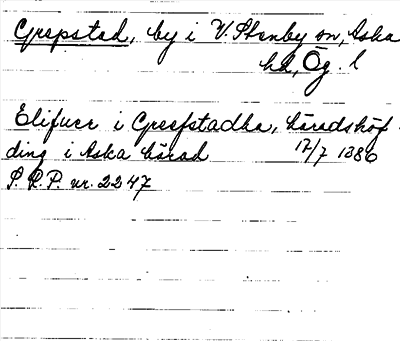 Grepstad, by i V. Stenby sn, Aska
hd, Ög. l
Elifuer i Greepstadha, häradshöf-
ding i Aska härad 17/7 1386
S. R. P. nr. 2247